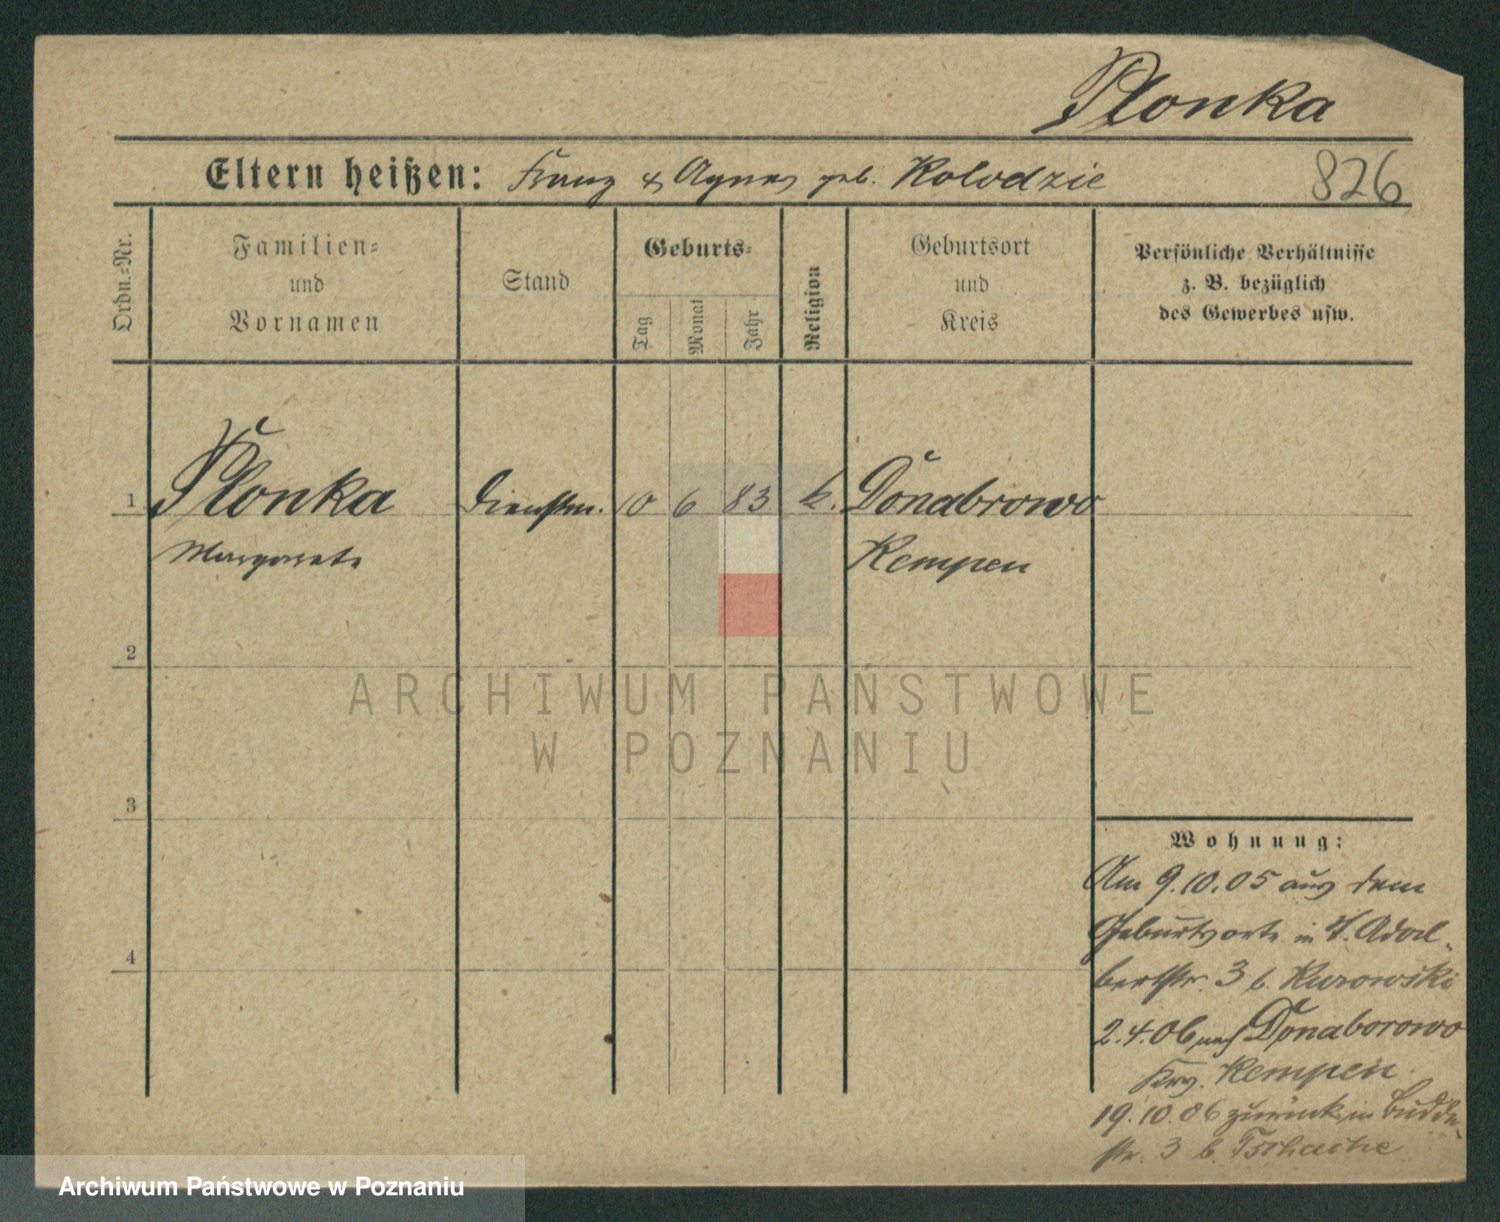 Plonka
Eltern heißen: Franz & Agnes geb. Kolodzie
826
Ordn.=Nr.
Familien=
und
Vornamen
Stand
Geburts=
Tag
Monat
Jahr
Religion
Geburtsort
und
Kreis
Persönliche Verhältnisse
z. B. bezüglich
des Gewerbes usw.
1 Plonka Dienstm. 10 6 83 k. Donabrowo
Margarete Kempen
2
3
4
Wohnung:
Am 9.10.05 aus dem
Geburtsorte in V. Adal-
bertstr. 3 b. Kurowski
2.4.06 nach Donaborowo
Krs. Kempen
19.10.06 zurück in Budde-
str. 3 b.
ARCHIWUM PAŃSTWOWE
W POZNANIU
Archiwum Państwowe w Poznaniu